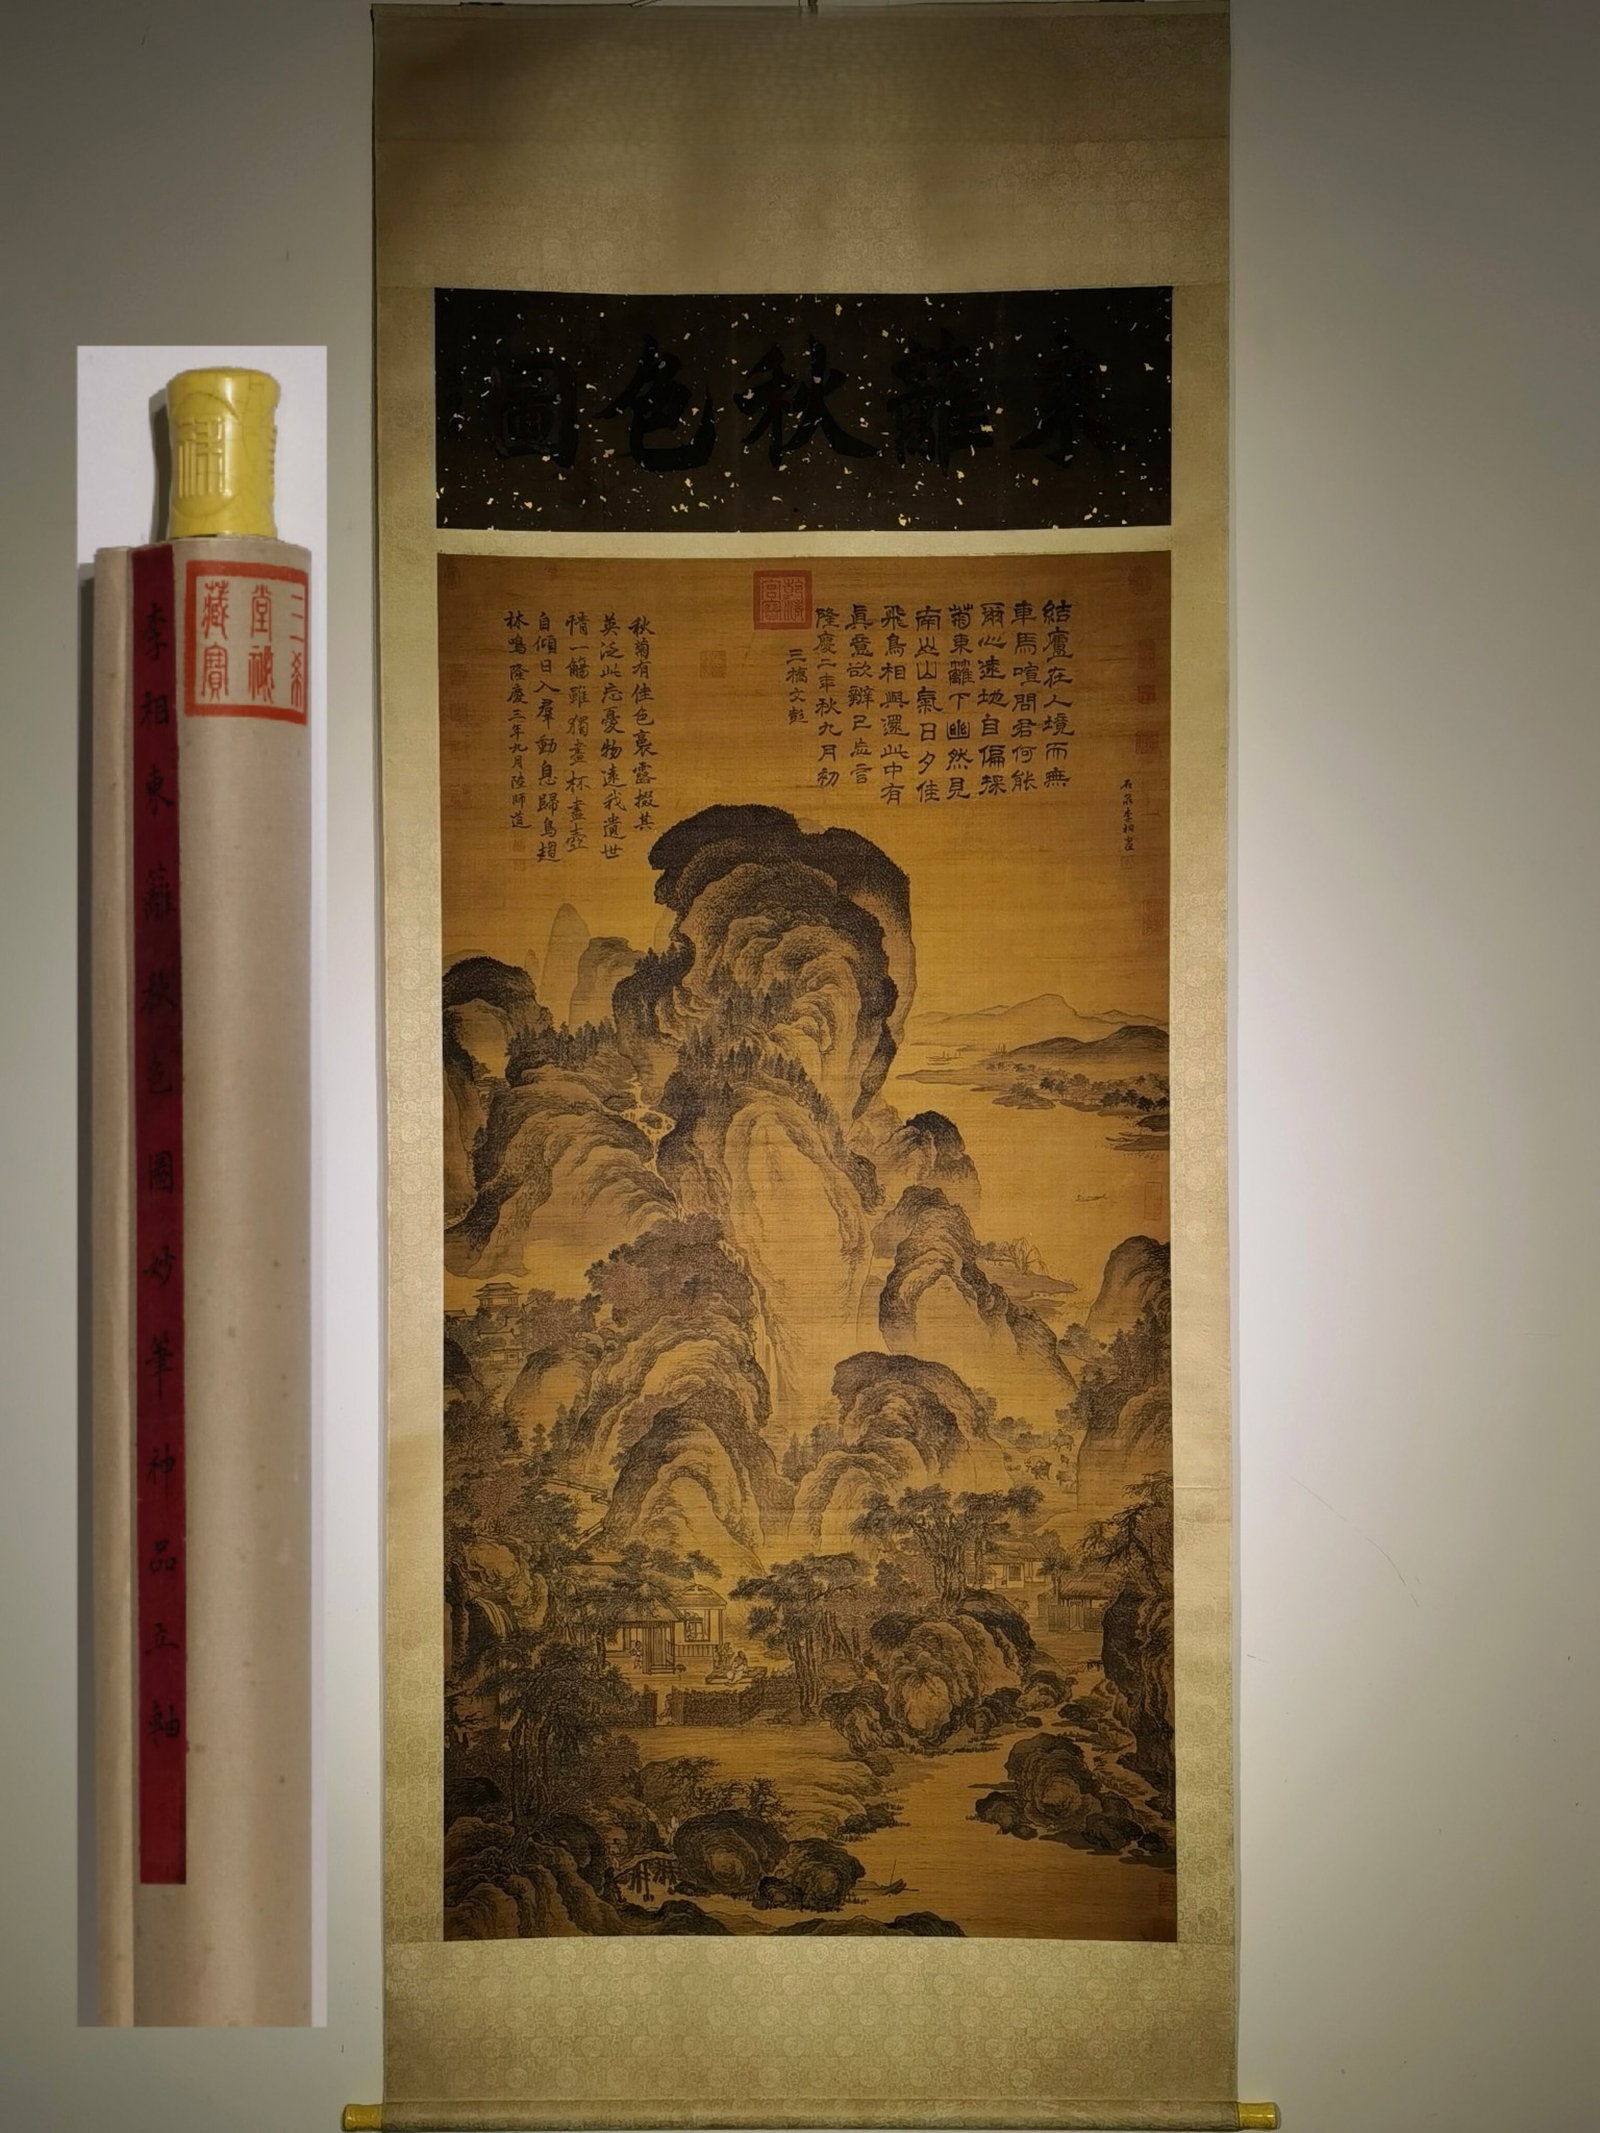 東籬秋色圖
結廬在人境而無
車馬喧問君何能
爾心遠地自偏採
菊東籬下悠然見
南山山氣日夕佳
飛鳥相與還此中有
眞意欲辯已忘言
隆慶二年秋九月初
三橋文彭
秋菊有佳色裛露掇其
英泛此忘憂物遠我遺世
情一觴雖獨盡杯盡壺
自傾日入羣動息歸鳥趨
林鳴 隆慶三年九月陸師道
石泉李相畫
李相東籬秋色圖妙筆神品立軸
三希
堂祕
藏寶